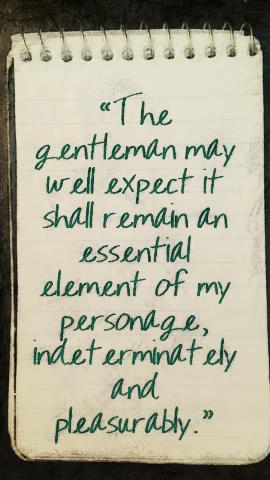 “The
gentleman may
well expect it
shall remain an
essential
element of my
personage,
indeterminately
and
pleasurably.”